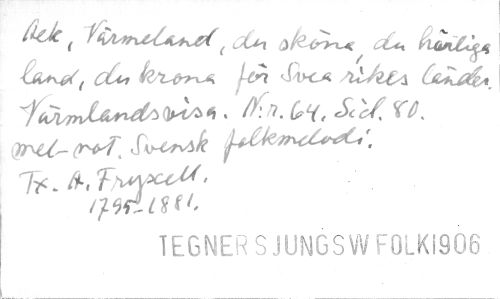 Ack, Värmeland, du sköna, du härliga
land, du krona för Svea rikes länder.
Värmlandsvisa. N:r. 64. Sid. 80.
mel-not. Svensk folkmelodi.
Tx. A. Fryxell.
1795-1881.
TEGNERSJUNGSWFOLK1906